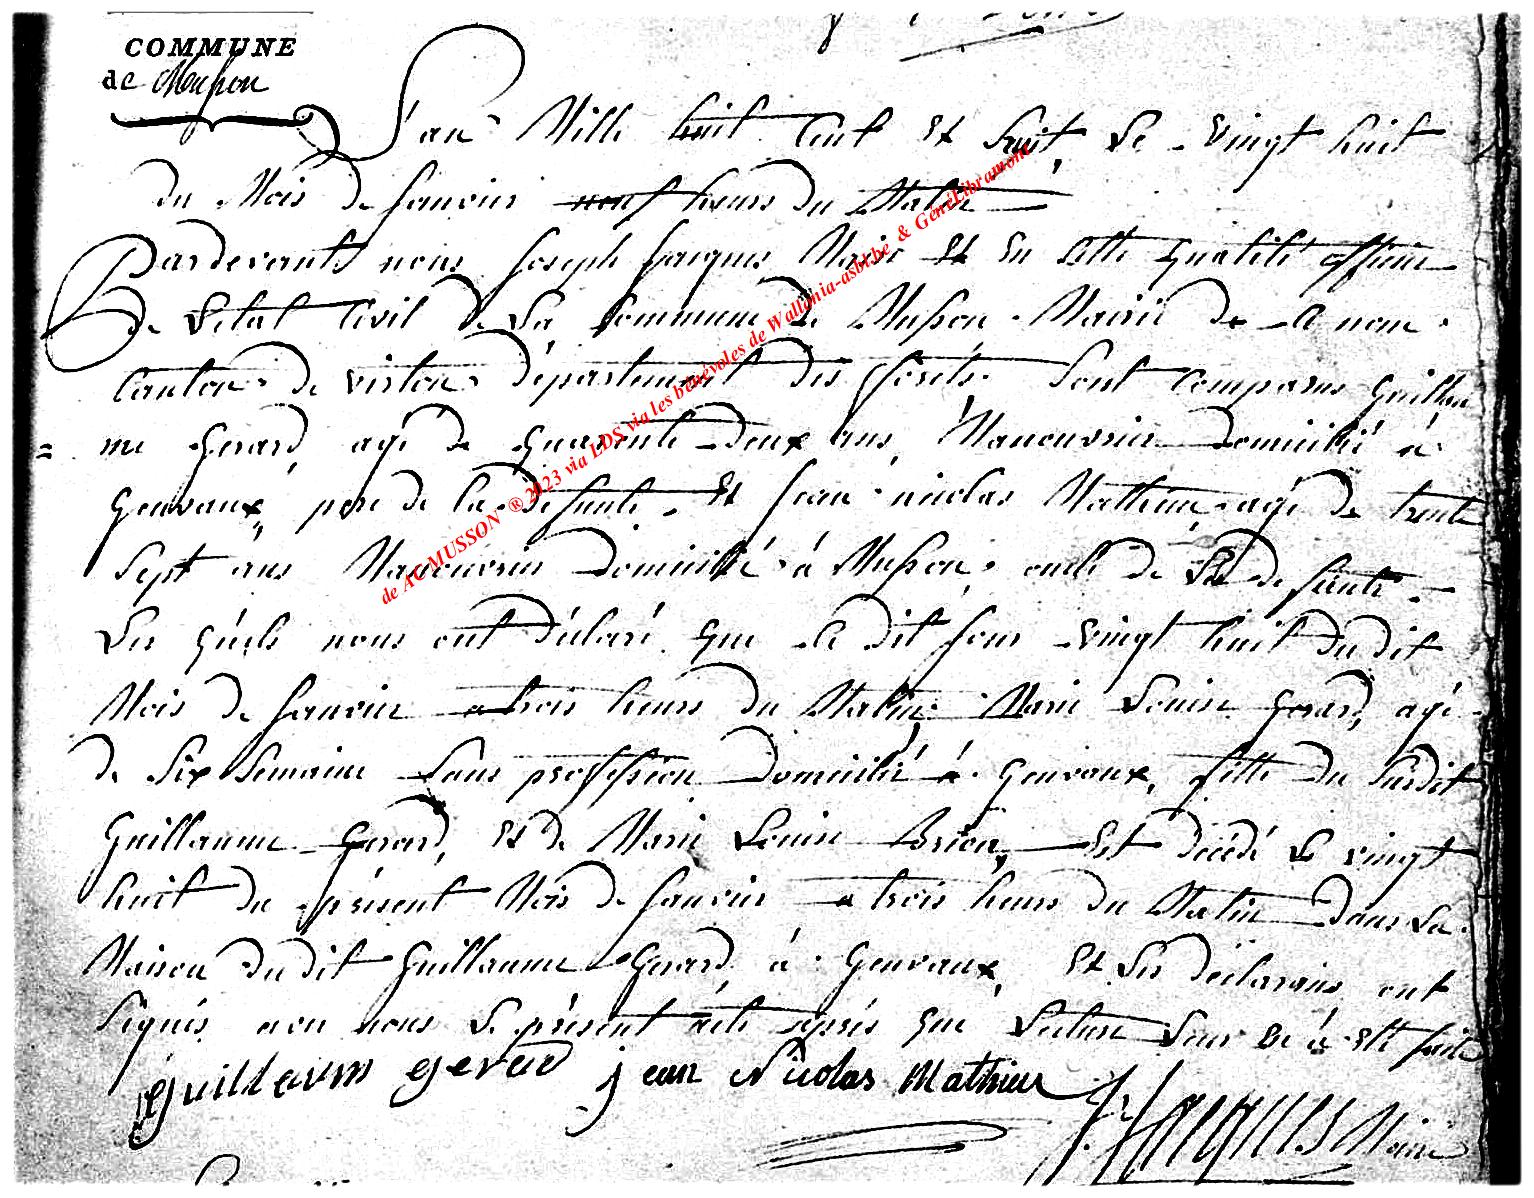 COMMUNE
de Musson
L'an Mille huit Cent et huit, Le vingt huit
du Mois de janvier neuf heures du Matin
Pardevants nous joseph jacques Maire et en cette qualité officier
de L'etat Civil de La Commune de Musson Mairie de Ce nom
Canton de virton département des forêts. Sont comparus guillau
= me gerard, agé de quarente deux ans, Manouvrier domicilié à
gennvaux, pere de la defunte, et jean nicolas Mathieu, agé de trente
Sept ans Manouvrier domicilié à Musson, oncle de La defunte.
Les quels nous ont déclaré que le dit jour vingt huit du dit
Mois de janvier a trois heures du Matin, Marie Louise gerard, agé
de Six Semaine Sans proffession domicilié à gennvaux, fille du Susdit
guillaume gerard, et de Marie Louise Brion, est décédé Le vingt
huit du présent Mois de janvier a trois heures du Matin dans La
Maison du dit guillaume gerard à gennvaux, et Les déclarans ont
Signés avec nous Le présent acte aprés que Lecture Leur en á eté faite
guillaume gerard jean Nicolas Mathieu
J. Jacques Maire
de AC MUSSON ® 2023 via LDS via les bénévoles de Wallonia-asbl.be & GeneLibramont